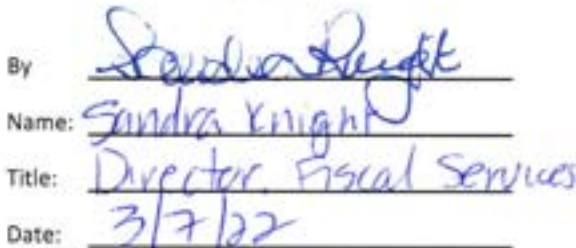 By Sandra Knight
Name: Sandra Knight
Title: Director, Fiscal Services
Date: 3/7/22